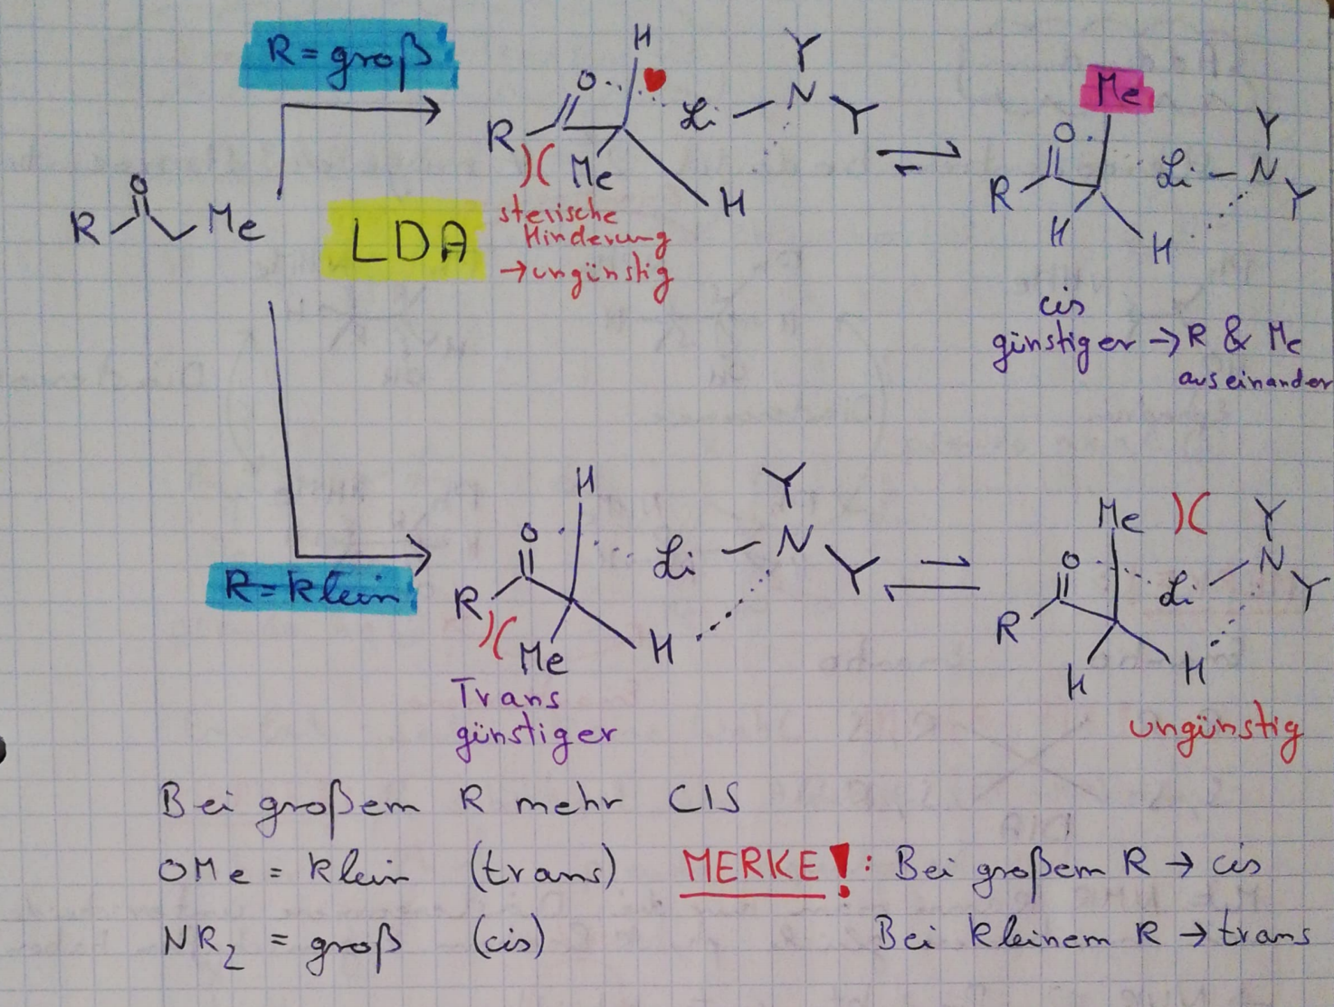 R = groß
H
O
Li
N
R
Me
H
sterische
Hinderung
→ ungünstig
Me
O
Li
N
R
H
H
cis
günstiger → R & Me
auseinander
R
O
Me
LDA
R = klein
H
O
Li
N
R
Me
H
Trans
günstiger
Me
O
Li
N
R
H
H
ungünstig
Bei großem R mehr CIS
OMe = klein (trans)
NR2 = groß (cis)
MERKE!: Bei großem R → cis
Bei kleinem R → trans